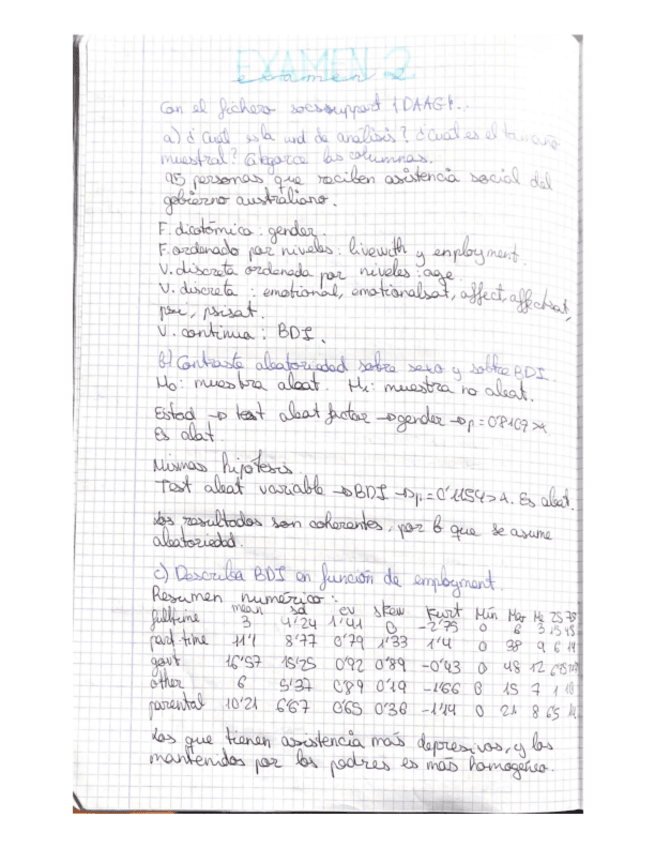 EXAMEN 2
examen 2
Con el fichero socsupport {DAAG}...
a) ¿Cuál es la und de análisis? ¿Cual es el tamaño
muestral? Categorice las columnas.
95 personas que reciben asistencia social del
gobierno australiano.
F. dicotómica: gender.
F. ordenado por niveles: livewith y employment.
V. discreta ordenada por niveles: age
V. discreta: emotional, emotionalsat, affect, affectsat,
psi, psisat.
V. continua: BDI.
b) Contraste aleatoriedad sobre sexo y sobre BDI.
H0: muestra aleat. H1: muestra no aleat.
Estad → test aleat factor → gender → p = 0'8107 > α
Es alat.
Mismas hipótesis.
Test aleat variable → BDI → p = 0'1154 > α. Es aleat.
Los resultados son coherentes, por lo que se asume
aleatoriedad.
c) Describa BDI en función de employment.
Resumen numérico:
mean sd cv skew Kurt Mín Max Me 25 75
fulltime 3 4'24 1'41 0 -2'75 0 6 3 1'5 4'5
part-time 11'1 8'77 0'79 1'33 1'4 0 38 9 6 14
govt 16'57 15'25 0'92 0'89 -0'43 0 48 12
other 6 5'37 0'89 0'19 -1'66 0 15 7 1 10
parental 10'21 6'67 0'65 0'38 -1'14 0 21 8 6'5
Los que tienen asistencia más depresivos, y los
mantenidos por los padres es más homogéneo.